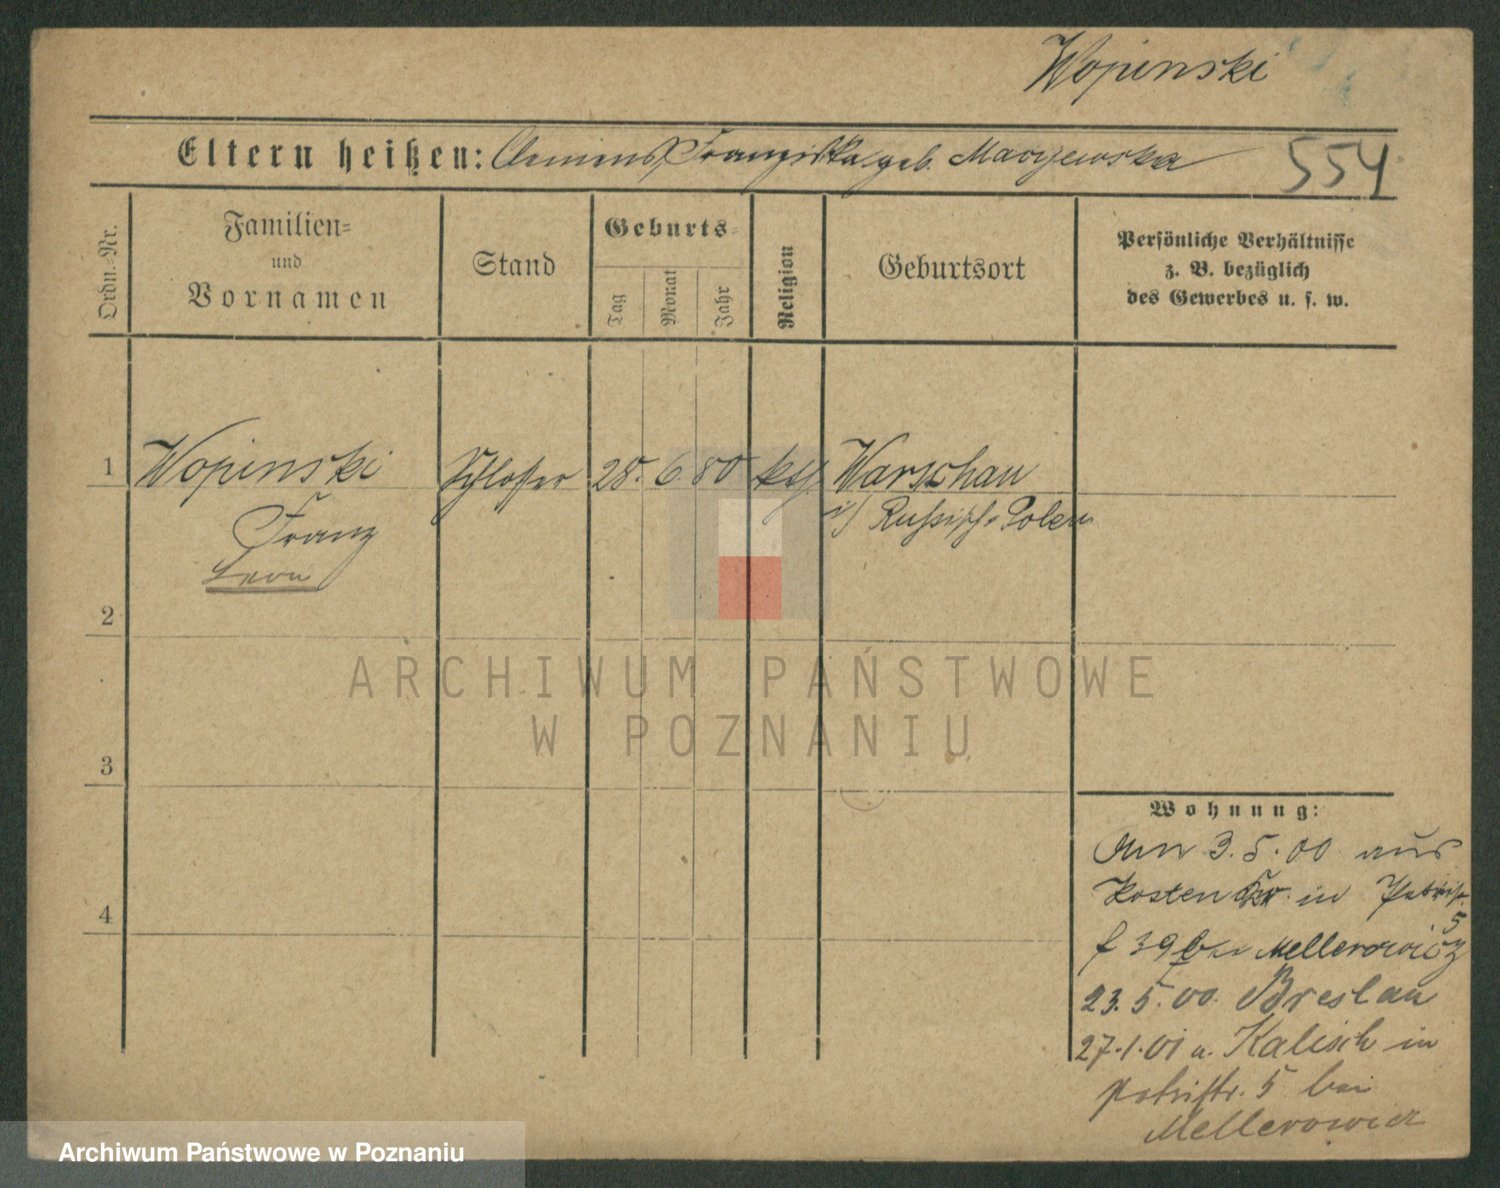 Wopinski
Eltern heißen: Clemens, Franziska geb. Maryewska
554
Ordn.-Nr.
Familien-
und
Vornamen
Stand
Geburts-
Tag
Monat
Jahr
Religion
Geburtsort
Persönliche Verhältnisse
z. B. bezüglich
des Gewerbes u. s. w.
1 Wopinski Schlosser 28. 6. 80 kth. Warschau
i/ Russisch-Polen
Franz
Leon
2
3
4
Wohnung:
3. 5. 00 aus
Kosten in
5
39 bei Mellerowicz
23. 5. 00. Breslau
27.1.01 a. Kalisch in
Petristr. 5 bei
Mellerowicz
ARCHIWUM PAŃSTWOWE
W POZNANIU
Archiwum Państwowe w Poznaniu